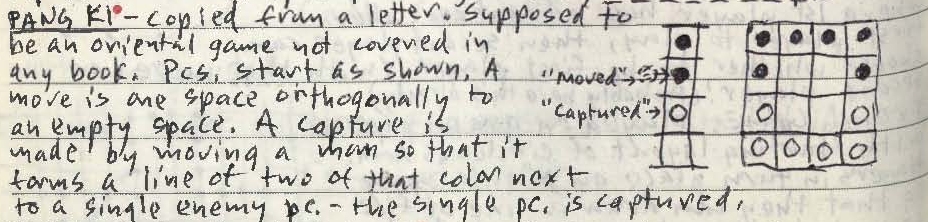 PANG KI - copied from a letter. Supposed to
be an oriental game not covered in
any book. Pcs. start as shown. A
move is one space orthogonally to
an empty space. A capture is
made by moving a man so that it
forms a line of two of that color next
to a single enemy pc. - the single pc. is captured.
"moved"→
"captured"→